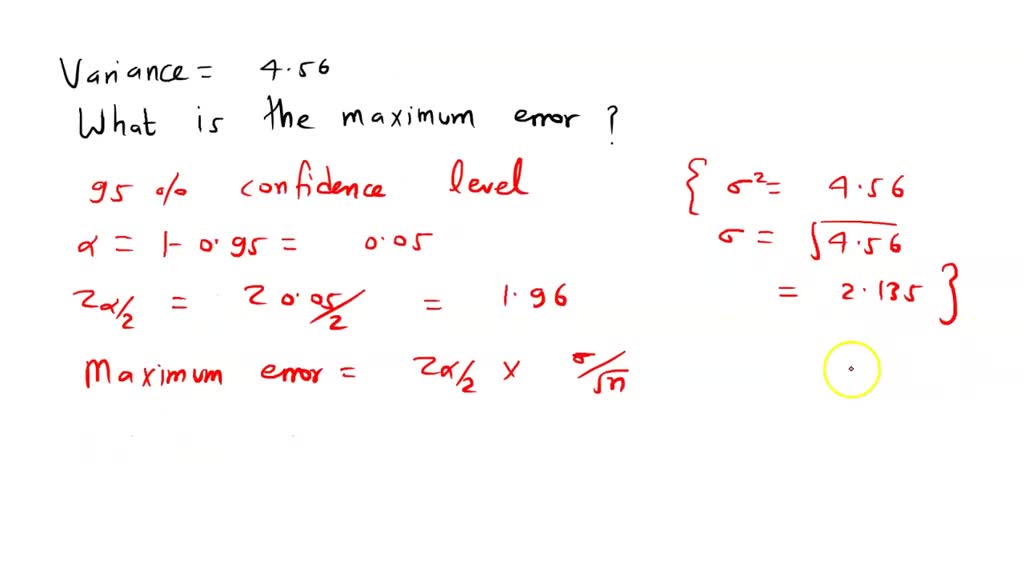 Variance = 4.56
What is the maximum error ?
95 % confidence level
α = 1 - 0.95 = 0.05
Zα/2 = Z0.05/2 = 1.96
Maximum error = Zα/2 × σ/√n
{ σ² = 4.56
σ = √4.56
= 2.135 }